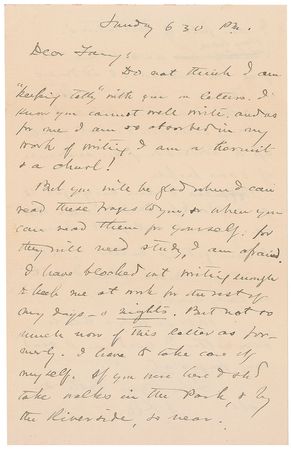 Sunday 6 30 P.M.
Dear Fanny:
Do not think I am
"keeping tally" with you in letters. I
know you cannot well write, and as
for me I am so absorbed in my
work of writing, I am a hermit
& a churl!
But you will be glad when I can
read these pages to you, or when you
can read them for yourself: for
they will need study, I am afraid.
I have blocked out writing enough
to keep me at work for the rest of
my days – & nights. But not so
much now of this latter as for-
merly. I have to take care of
myself. If you were here I sh'd
take walks in the Park, & by
the Riverside, so near.